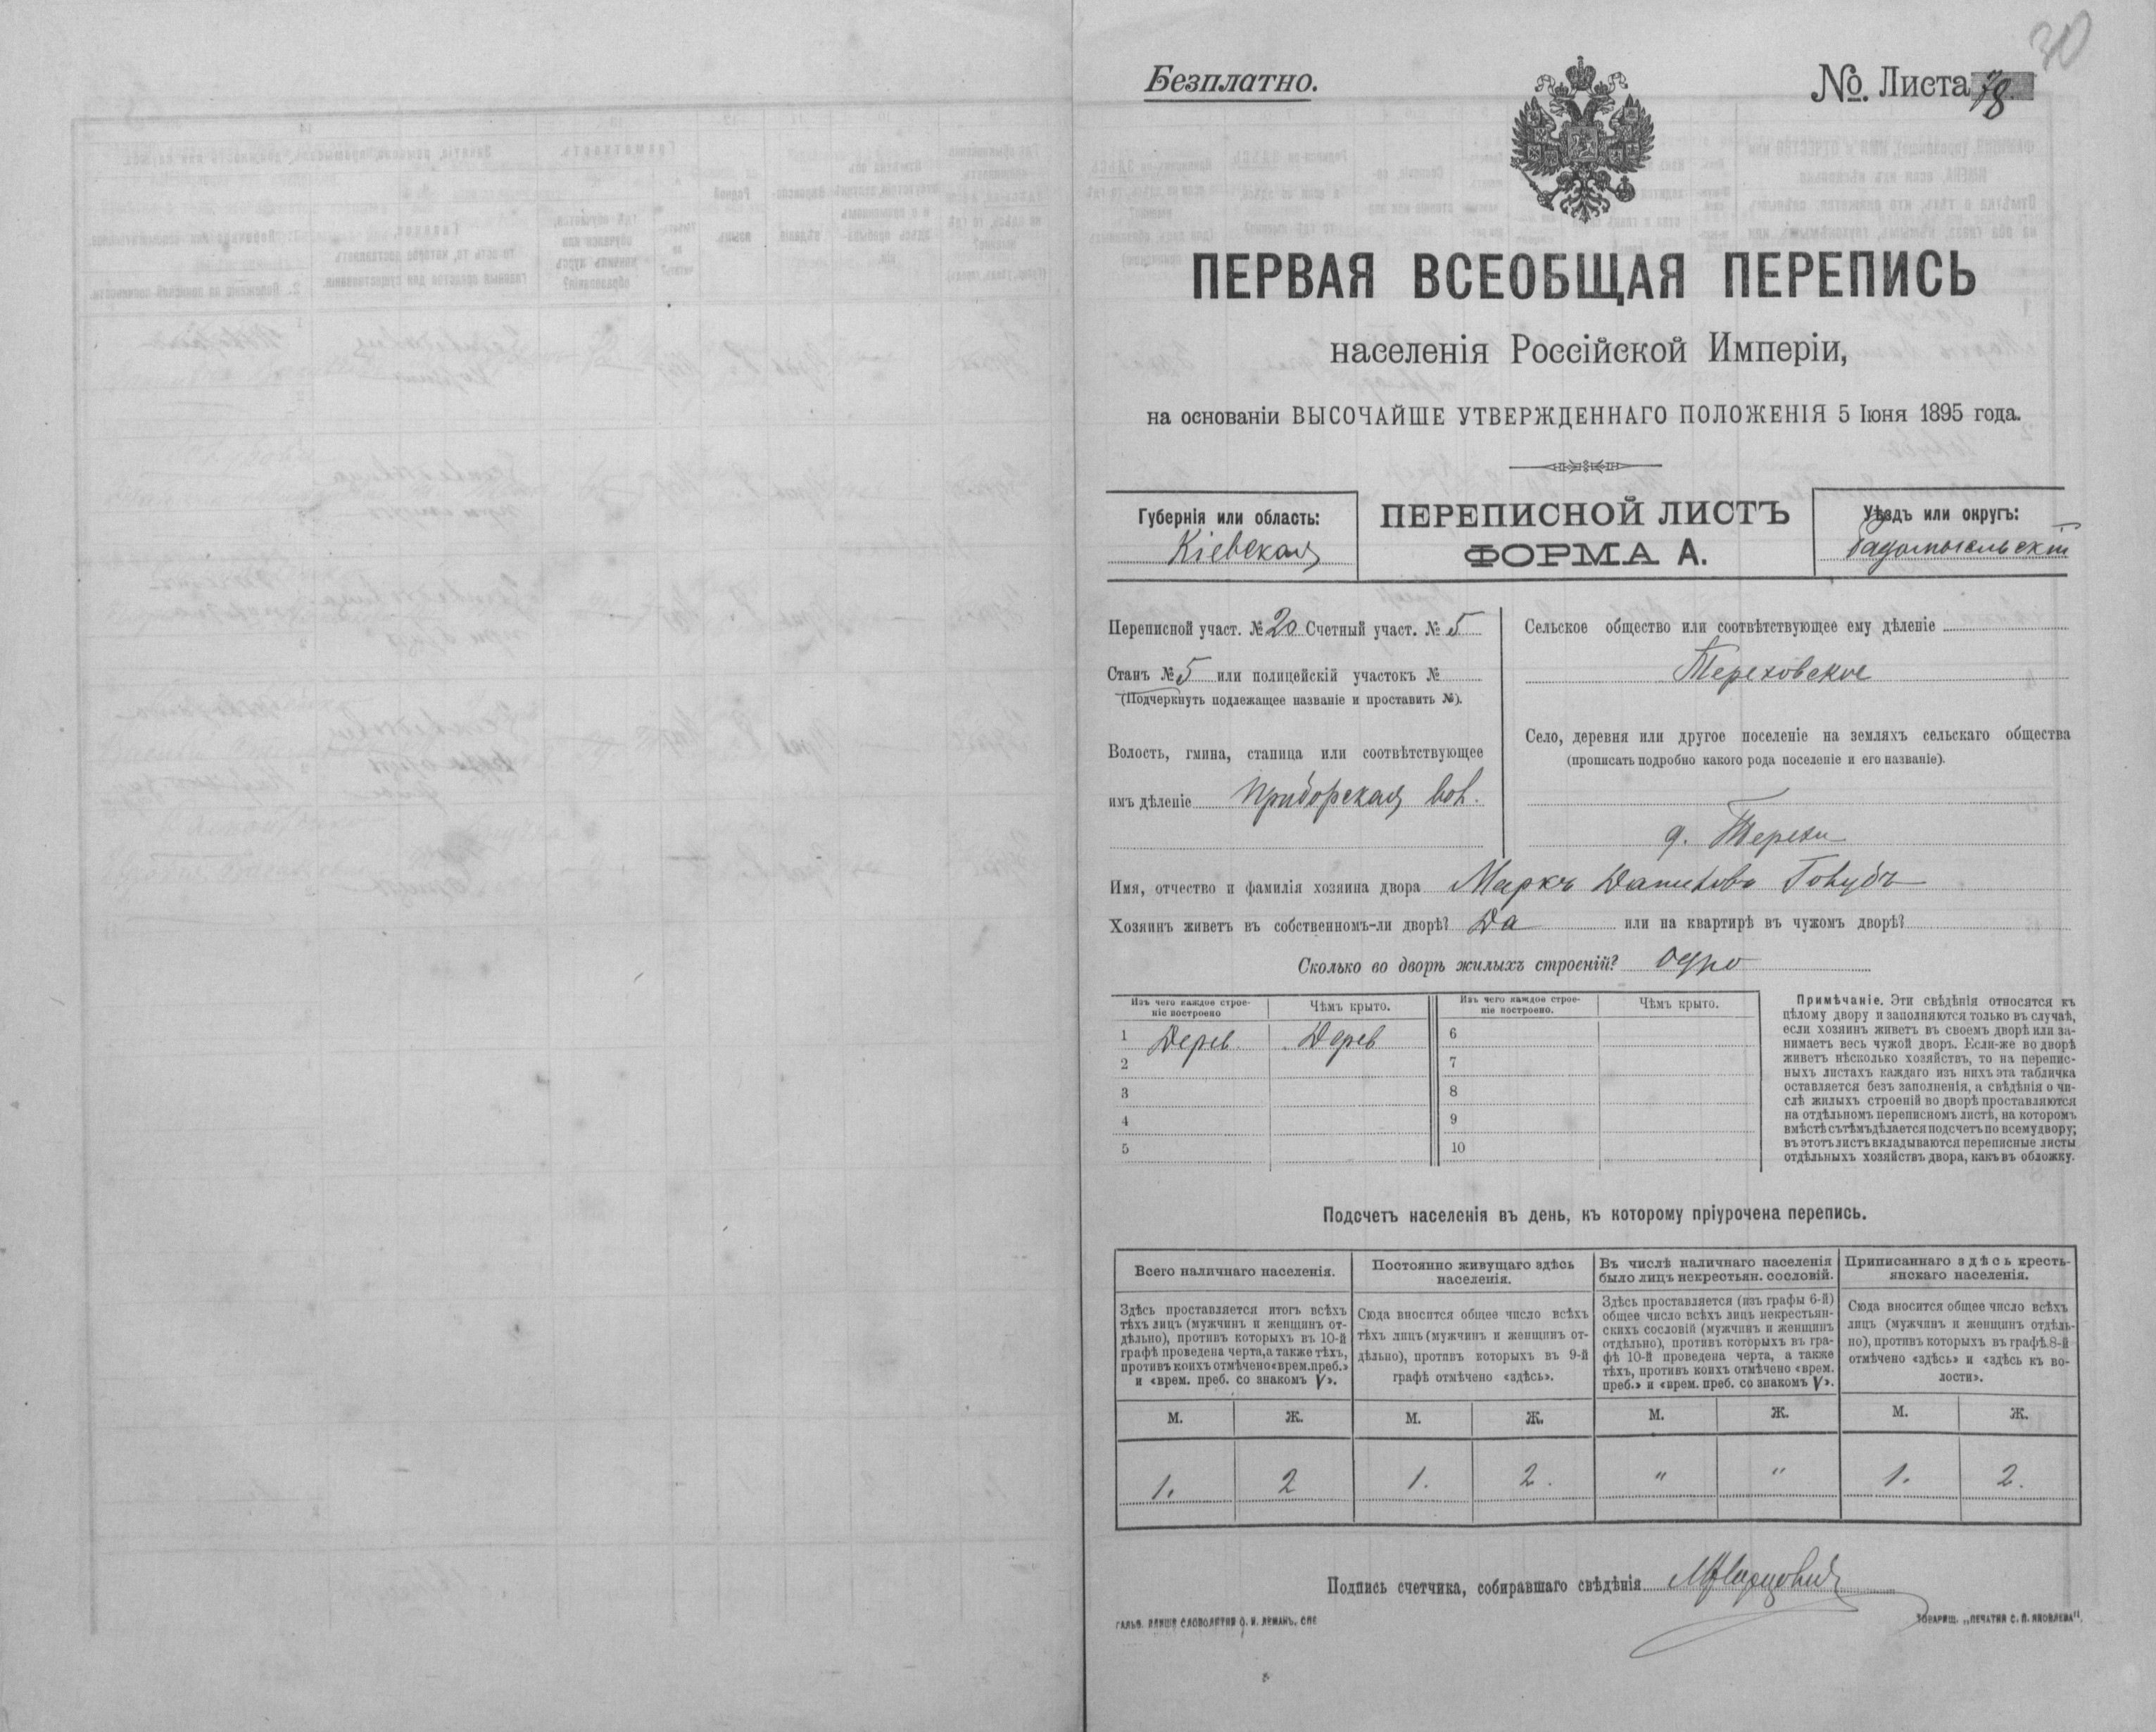 30
Безплатно.
№ Листа 78.
ПЕРВАЯ ВСЕОБЩАЯ ПЕРЕПИСЬ
населенія Россійской Имперіи,
на основаніи ВЫСОЧАЙШЕ УТВЕРЖДЕННАГО ПОЛОЖЕНІЯ 5 Іюня 1895 года.
Губернія или область:
Кіевская
ПЕРЕПИСНОЙ ЛИСТЪ
ФОРМА А.
Уѣздъ или округъ:
Радомысльскій
Переписной участ. № 20 Счетный участ. № 5
Станъ № 5 или полицейскій участокъ №
(Подчеркнуть подлежащее названіе и проставить №).
Волость, гмина, станица или соотвѣтствующее
имъ дѣленіе Приборская вол.
Сельское общество или соотвѣтствующее ему дѣленіе
Тереховское
Село, деревня или другое поселеніе на земляхъ сельскаго общества
(прописать подробно какого рода поселеніе и его названіе).
д. Терехи
Имя, отчество и фамилія хозяина двора Маркъ Даниловъ Голубъ
Хозяинъ живетъ въ собственномъ-ли дворѣ? Да или на квартирѣ въ чужомъ дворѣ?
Сколько во дворѣ жилыхъ строеній? Одно
Изъ чего каждое строе-
ніе построено
Чѣмъ крыто.
Изъ чего каждое строе-
ніе построено.
Чѣмъ крыто.
1 Дерев. Дерев 6
2 7
3 8
4 9
5 10
Примѣчаніе. Эти свѣдѣнія относятся къ
цѣлому двору и заполняются только въ случаѣ,
если хозяинъ живетъ въ своемъ дворѣ или за-
нимаетъ весь чужой дворъ. Если-же во дворѣ
живетъ нѣсколько хозяйствъ, то на перепис-
ныхъ листахъ каждаго изъ нихъ эта табличка
оставляется безъ заполненія, а свѣдѣнія о чи-
слѣ жилыхъ строеній во дворѣ проставляются
на отдѣльномъ переписномъ листѣ, на которомъ
вмѣстѣ сътѣмъ дѣлается подсчетъ по всему двору;
въ этотъ листъ вкладываются переписные листы
отдѣльныхъ хозяйствъ двора, какъ въ обложку.
Подсчетъ населенія въ день, къ которому пріурочена перепись.
Всего наличнаго населенія.
Здѣсь проставляется итогъ всѣхъ
тѣхъ лицъ (мужчинъ и женщинъ от-
дѣльно), противъ которыхъ въ 10-й
графѣ проведена черта, а также тѣхъ,
противъ коихъ отмѣчено «врем. преб.»
и «врем. преб. со знакомъ V».
Постоянно живущаго здѣсь
населенія.
Сюда вносится общее число всѣхъ
тѣхъ лицъ (мужчинъ и женщинъ от-
дѣльно), противъ которыхъ въ 9-й
графѣ отмѣчено «здѣсь».
Въ числѣ наличнаго населенія
было лицъ некрестьян. сословій.
Здѣсь проставляется (изъ графы 6-й)
общее число всѣхъ лицъ некрестьян-
скихъ сословій (мужчинъ и женщинъ
отдѣльно), противъ которыхъ въ гра-
фѣ 10-й проведена черта, а также
тѣхъ, противъ коихъ отмѣчено «врем.
преб.» и «врем. преб. со знакомъ V».
Приписаннаго здѣсь кресть-
янскаго населенія.
Сюда вносится общее число всѣхъ
лицъ (мужчинъ и женщинъ отдѣль-
но), противъ которыхъ въ графѣ 8-й
отмѣчено «здѣсь» и «здѣсь къ во-
лости».
М. Ж. М. Ж. М. Ж. М. Ж.
1. 2 1. 2. " " 1. 2.
Подпись счетчика, собиравшаго свѣдѣнія
ТОВАРИЩ. „ПЕЧАТНЯ С. П. ЯКОВЛЕВА".